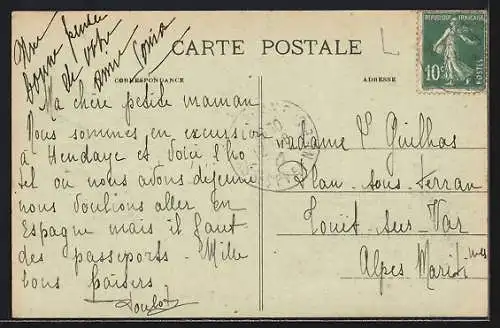 Une
bonne pensée
de votre
amie Sonia
CARTE POSTALE
RÉPUBLIQUE FRANÇAISE
10c
POSTES
CORRESPONDANCE
ADRESSE
Ma chère petite maman
Nous sommes en excursion
à Hendaye et voici l'ho
tel où nous avons déjeuné
nous voulions aller en
Espagne mais il faut
des passeports. Mille
bons baisers
Madame V Guilhas
Plan-sous-Ferran
Touët-sur-Var
Alpes Maritimes